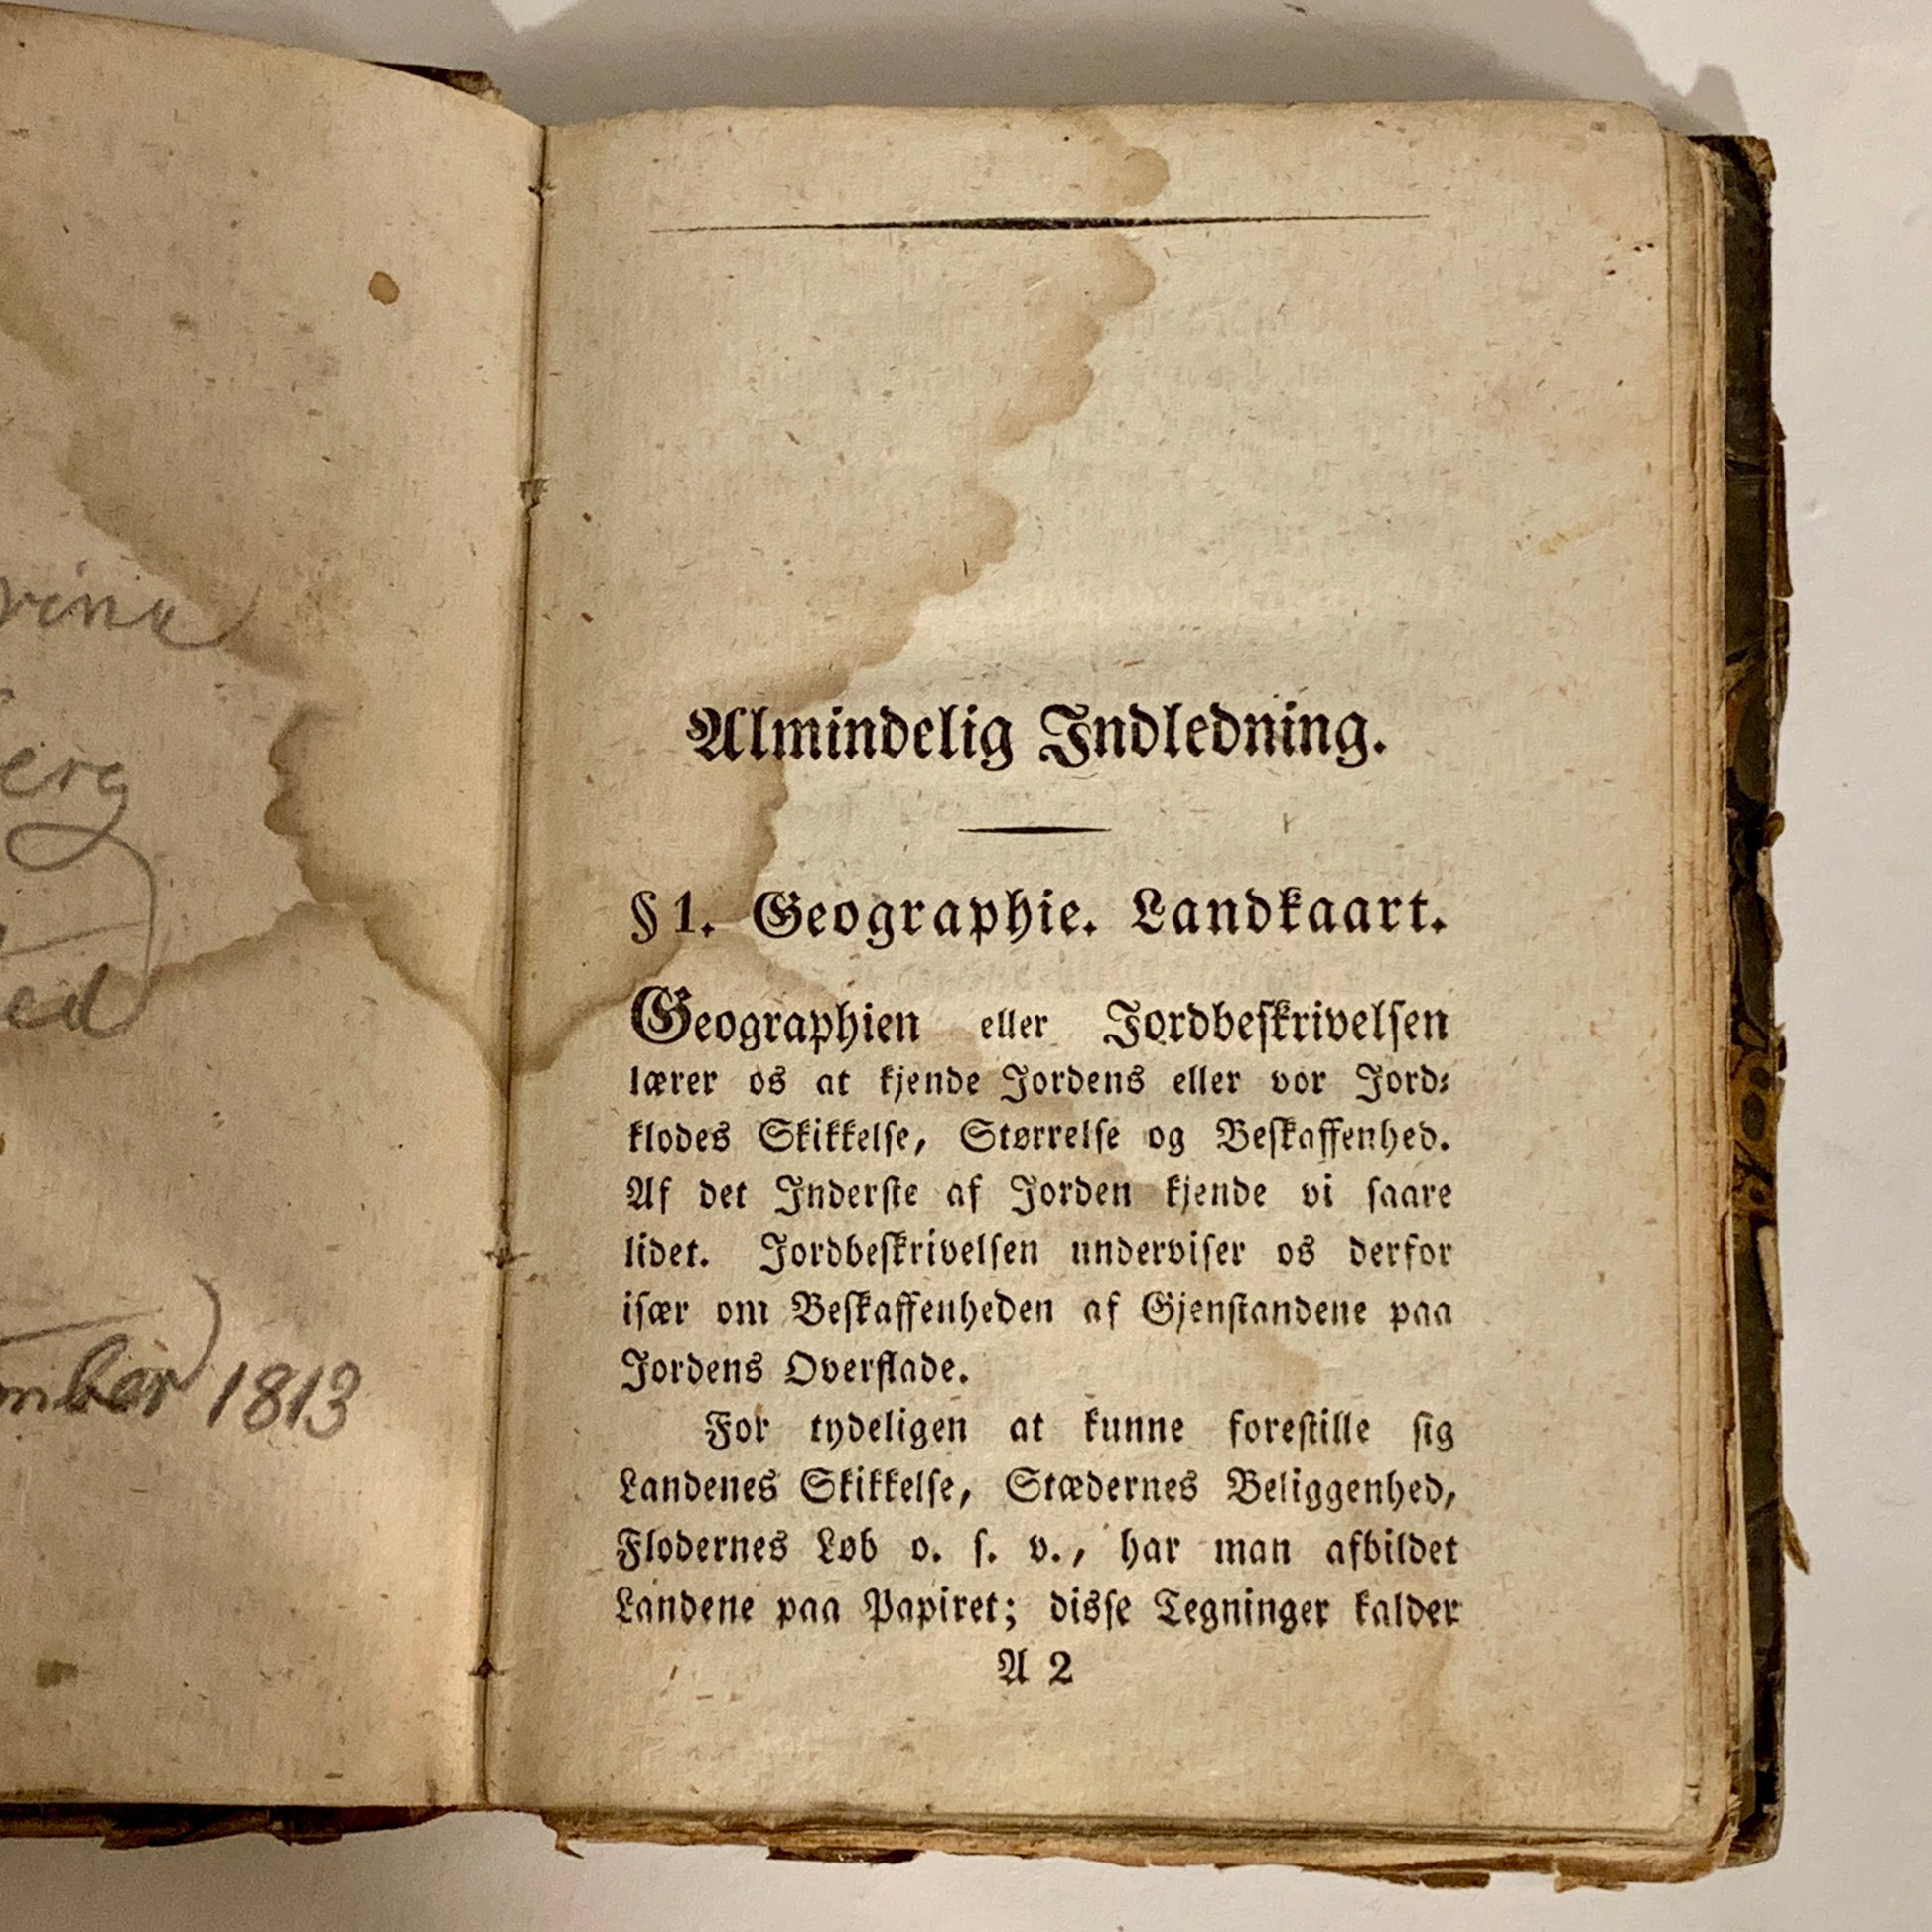 1813
Almindelig Indledning.
§ 1. Geographie. Landkaart.
Geographien eller Jordbeskrivelsen
lærer os at kjende Jordens eller vor Jord-
klodes Skikkelse, Størrelse og Beskaffenhed.
Af det Inderste af Jorden kjende vi saare
lidet. Jordbeskrivelsen underviser os derfor
især om Beskaffenheden af Gjenstandene paa
Jordens Overflade.
For tydeligen at kunne forestille sig
Landenes Skikkelse, Stædernes Beliggenhed,
Flodernes Løb o. s. v., har man afbildet
Landene paa Papiret; disse Tegninger kalder
A 2